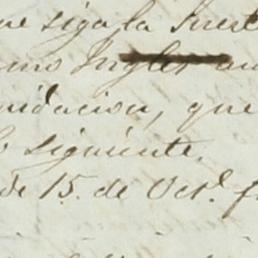 ue siga la suert
omo Ingles au
uidacion, que
o siguiente.
de 15. de Oct.e f